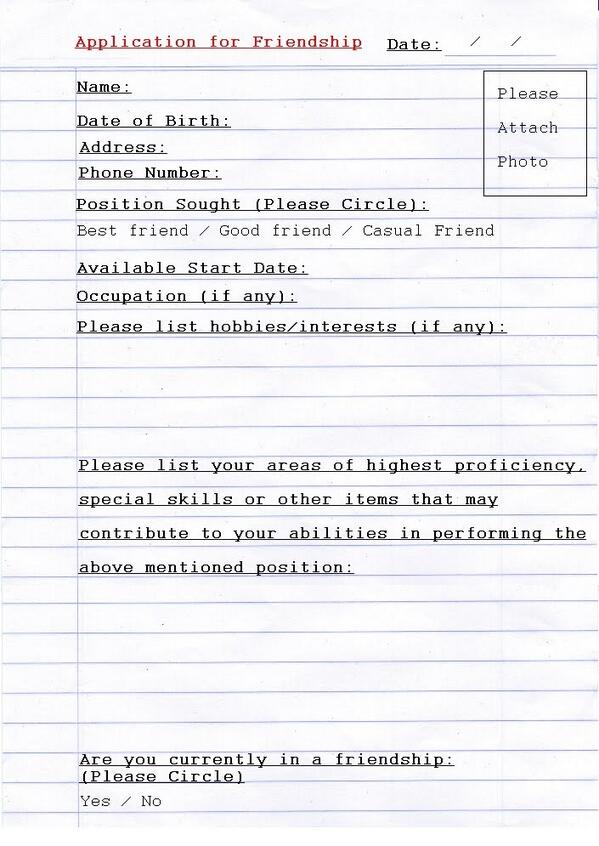 Application for Friendship Date: / /
Name:
Please
Attach
Photo
Date of Birth:
Address:
Phone Number:
Position Sought (Please Circle):
Best friend / Good friend / Casual Friend
Available Start Date:
Occupation (if any):
Please list hobbies/interests (if any):
Please list your areas of highest proficiency,
special skills or other items that may
contribute to your abilities in performing the
above mentioned position:
Are you currently in a friendship:
(Please Circle)
Yes / No